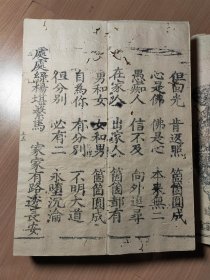 但回光 肯返照 箇箇圓成
心是佛 佛是心 本來無二
愚癡人 信不及 向外追尋
在家公 出家人 箇箇都有
勇和女 女和男 箇箇圓成
自為你 有分別 不明大道
但分別 必有二 永墮沉淪
處處綠楊堪繫馬 家家有路透長安